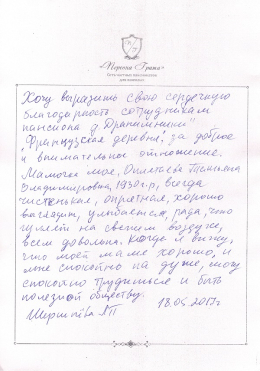 Хочу выразить свою сердечную
благодарность сотрудникам
пансиона д. "
Французская деревня", за доброе
и внимательное отношение.
Мамочка моя, Татьяна
Владимировна, 1950 г.р, всегда
чистенькая, опрятная, хорошо
выглядит, улыбается, рада, что
гуляет на свежем воздухе,
всем довольна. Когда я вижу,
что моей маме хорошо, и
мне спокойно на душе, могу
спокойно трудиться и быть
полезной обществу.
18.05.2017г